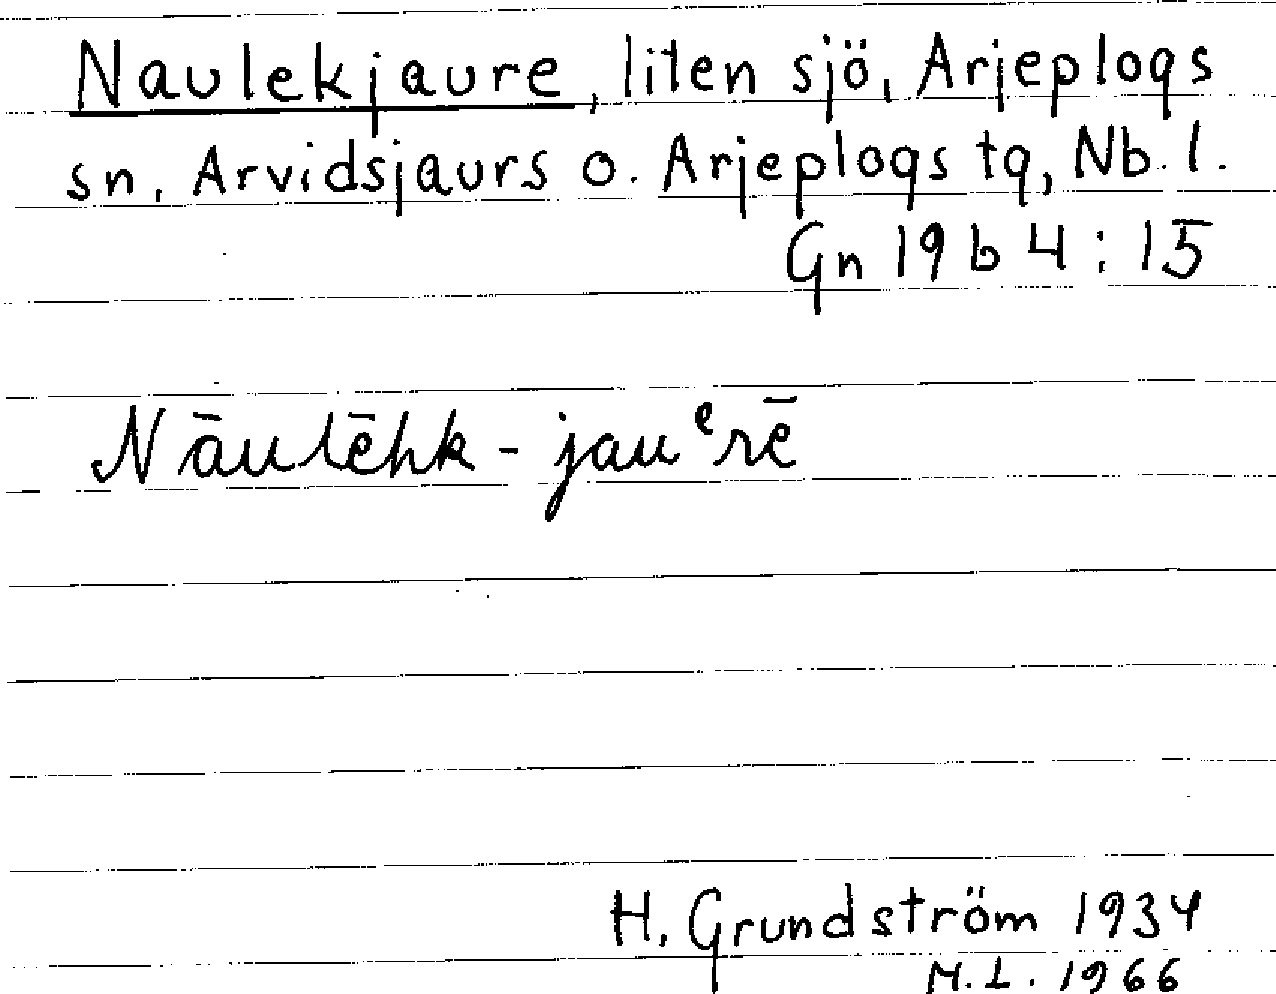 Naulekjaure, liten sjö, Arjeplogs
sn, Arvidsjaurs o. Arjeplogs tg, Nb. l.
Gn 19 b 4 : 15
Nāulēhk - jauᵉrē
H. Grundström 1934
M.L. 1966